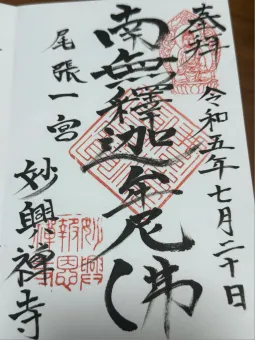 奉拜
令和五年七月二十日
南無釋迦牟尼佛
尾張一宮
妙興禅寺
妙興
報恩
禅寺